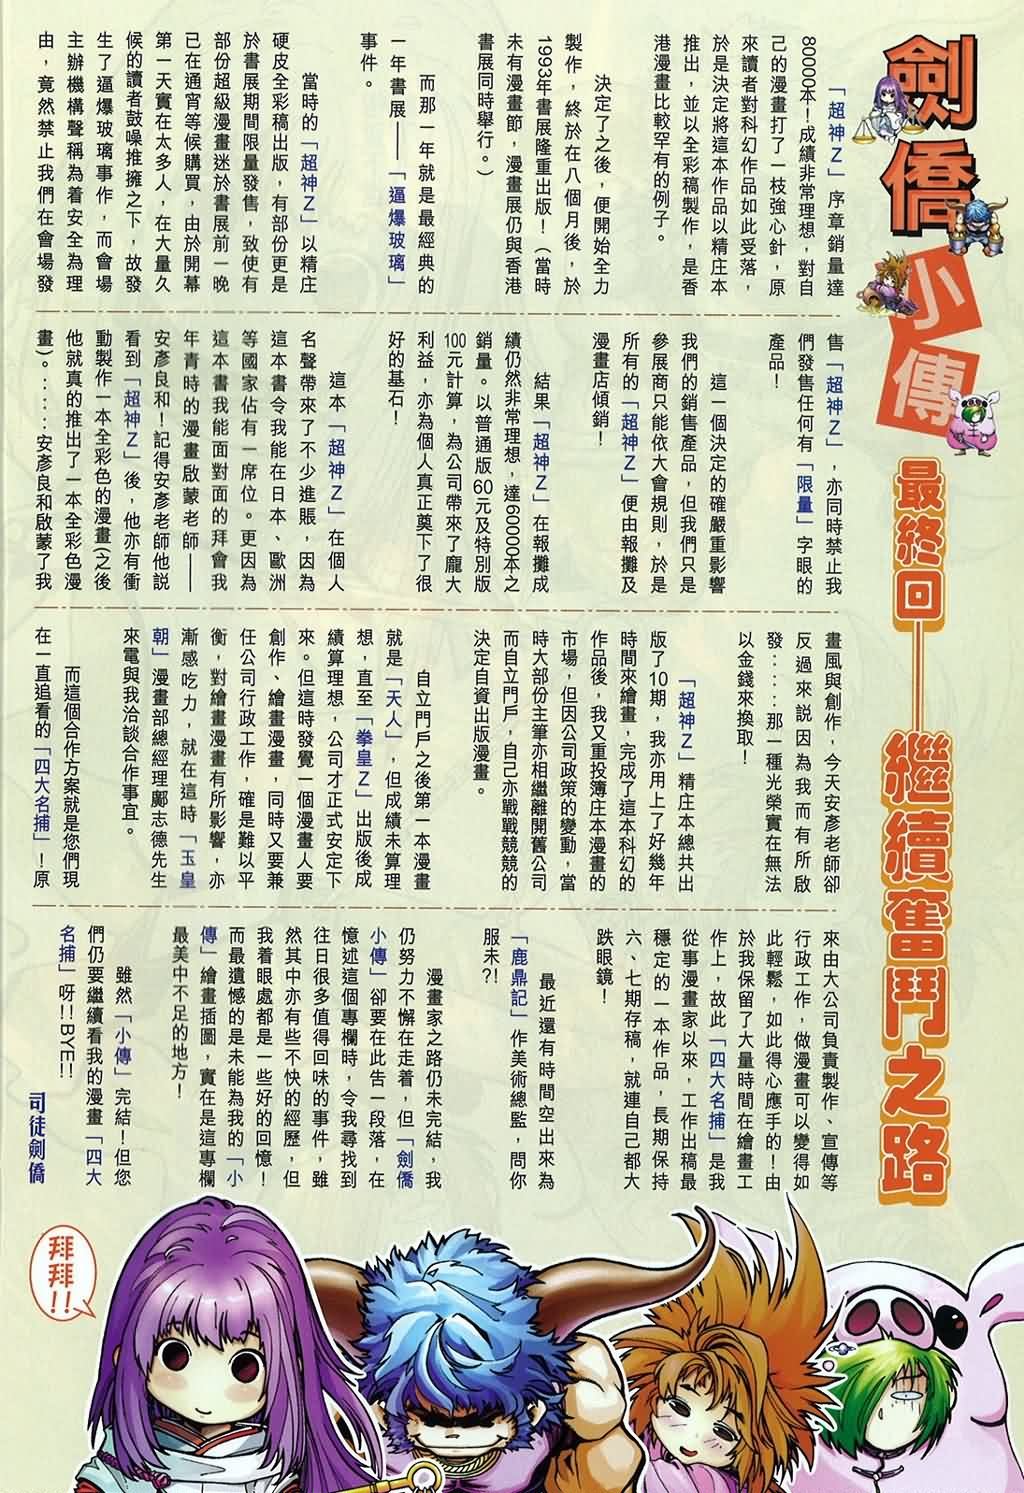 劍僑
小傳
最終回——繼續奮鬥之路
「超神Z」序章銷量達
80000本！成績非常理想，對自
己的漫畫打了一枝強心針，原
來讀者對科幻作品如此受落，
於是決定將這本作品以精庄本
推出，並以全彩稿製作，是香
港漫畫比較罕有的例子。
決定了之後，便開始全力
製作，終於在八個月後，於
1993年書展隆重出版！（當時
未有漫畫節，漫畫展仍與香港
書展同時舉行。）
而那一年就是最經典的
一年書展——「逼爆玻璃」
事件。
當時的「超神Z」以精庄
硬皮全彩稿出版，有部份更是
於書展期間限量發售，致使有
部份超級漫畫迷於書展前一晚
已在通宵等候購買，由於開幕
第一天實在太多人，在大量久
候的讀者鼓噪推擁之下，故發
生了逼爆玻璃事件，而會場
主辦機構聲稱為着安全為理
由，竟然禁止我們在會場發
售「超神Z」，亦同時禁止我
們發售任何有「限量」字眼的
產品！
這一個決定的確嚴重影響
我們的銷售產品，但我們只是
參展商只能依大會規則，於是
所有的「超神Z」便由報攤及
漫畫店傾銷！
結果「超神Z」在報攤成
績仍然非常理想，達60000本之
銷量。以普通版60元及特別版
100元計算，為公司帶來了龐大
利益，亦為個人真正奠下了很
好的基石！
這本「超神Z」在個人
名聲帶來了不少進賬，因為
這本書令我能在日本、歐洲
等國家佔有一席位。更因為
這本書我能面對面的拜會我
年青時的漫畫啟蒙老師——
安彥良和！記得安彥老師他說
看到「超神Z」後，他亦有衝
動製作一本全彩色的漫畫(之後
他就真的推出了一本全彩色漫
畫)。：：：安彥良和啟蒙了我
畫風與創作，今天安彥老師卻
反過來說因為我而有所啟
發：：：那一種光榮實在無法
以金錢來換取！
「超神Z」精庄本總共出
版了10期，我亦用上了好幾年
時間來繪畫，完成了這本科幻的
作品後，我又重投薄庄本漫畫的
市場，但因公司政策的變動，當
時大部份主筆亦相繼離開舊公司
而自立門戶，自己亦戰戰競競的
決定自資出版漫畫。
自立門戶之後第一本漫畫
就是「天人」，但成績未算理
想，直至「拳皇Z」出版後成
績算理想，公司才正式安定下
來。但這時發覺一個漫畫人要
創作、繪畫漫畫，同時又要兼
任公司行政工作，確是難以平
衡，對繪畫漫畫有所影響，亦
漸感吃力，就在這時「玉皇
朝」漫畫部總經理鄺志德先生
來電與我洽談合作事宜。
而這個合作方案就是您們現
在一直追看的「四大名捕」！原
來由大公司負責製作、宣傳等
行政工作，做漫畫可以變得如
此輕鬆，如此得心應手的！由
於我保留了大量時間在繪畫工
作上，故此「四大名捕」是我
從事漫畫家以來，工作出稿最
穩定的一本作品，長期保持
六、七期存稿，就連自己都大
跌眼鏡！
最近還有時間空出來為
「鹿鼎記」作美術總監，問你
服未?!
漫畫家之路仍未完結，我
仍努力不懈在走着，但「劍僑
小傳」卻要在此告一段落，在
憶述這個專欄時，令我尋找到
往日很多值得回味的事件，雖
然其中亦有些不快的經歷，但
我着眼處都是一些好的回憶！
而最遺憾的是未能為我的「小
傳」繪畫插圖，實在是這專欄
最美中不足的地方！
雖然「小傳」完結！但您
們仍要繼續看我的漫畫「四大
名捕」呀!!BYE!!
司徒劍僑
拜拜!!